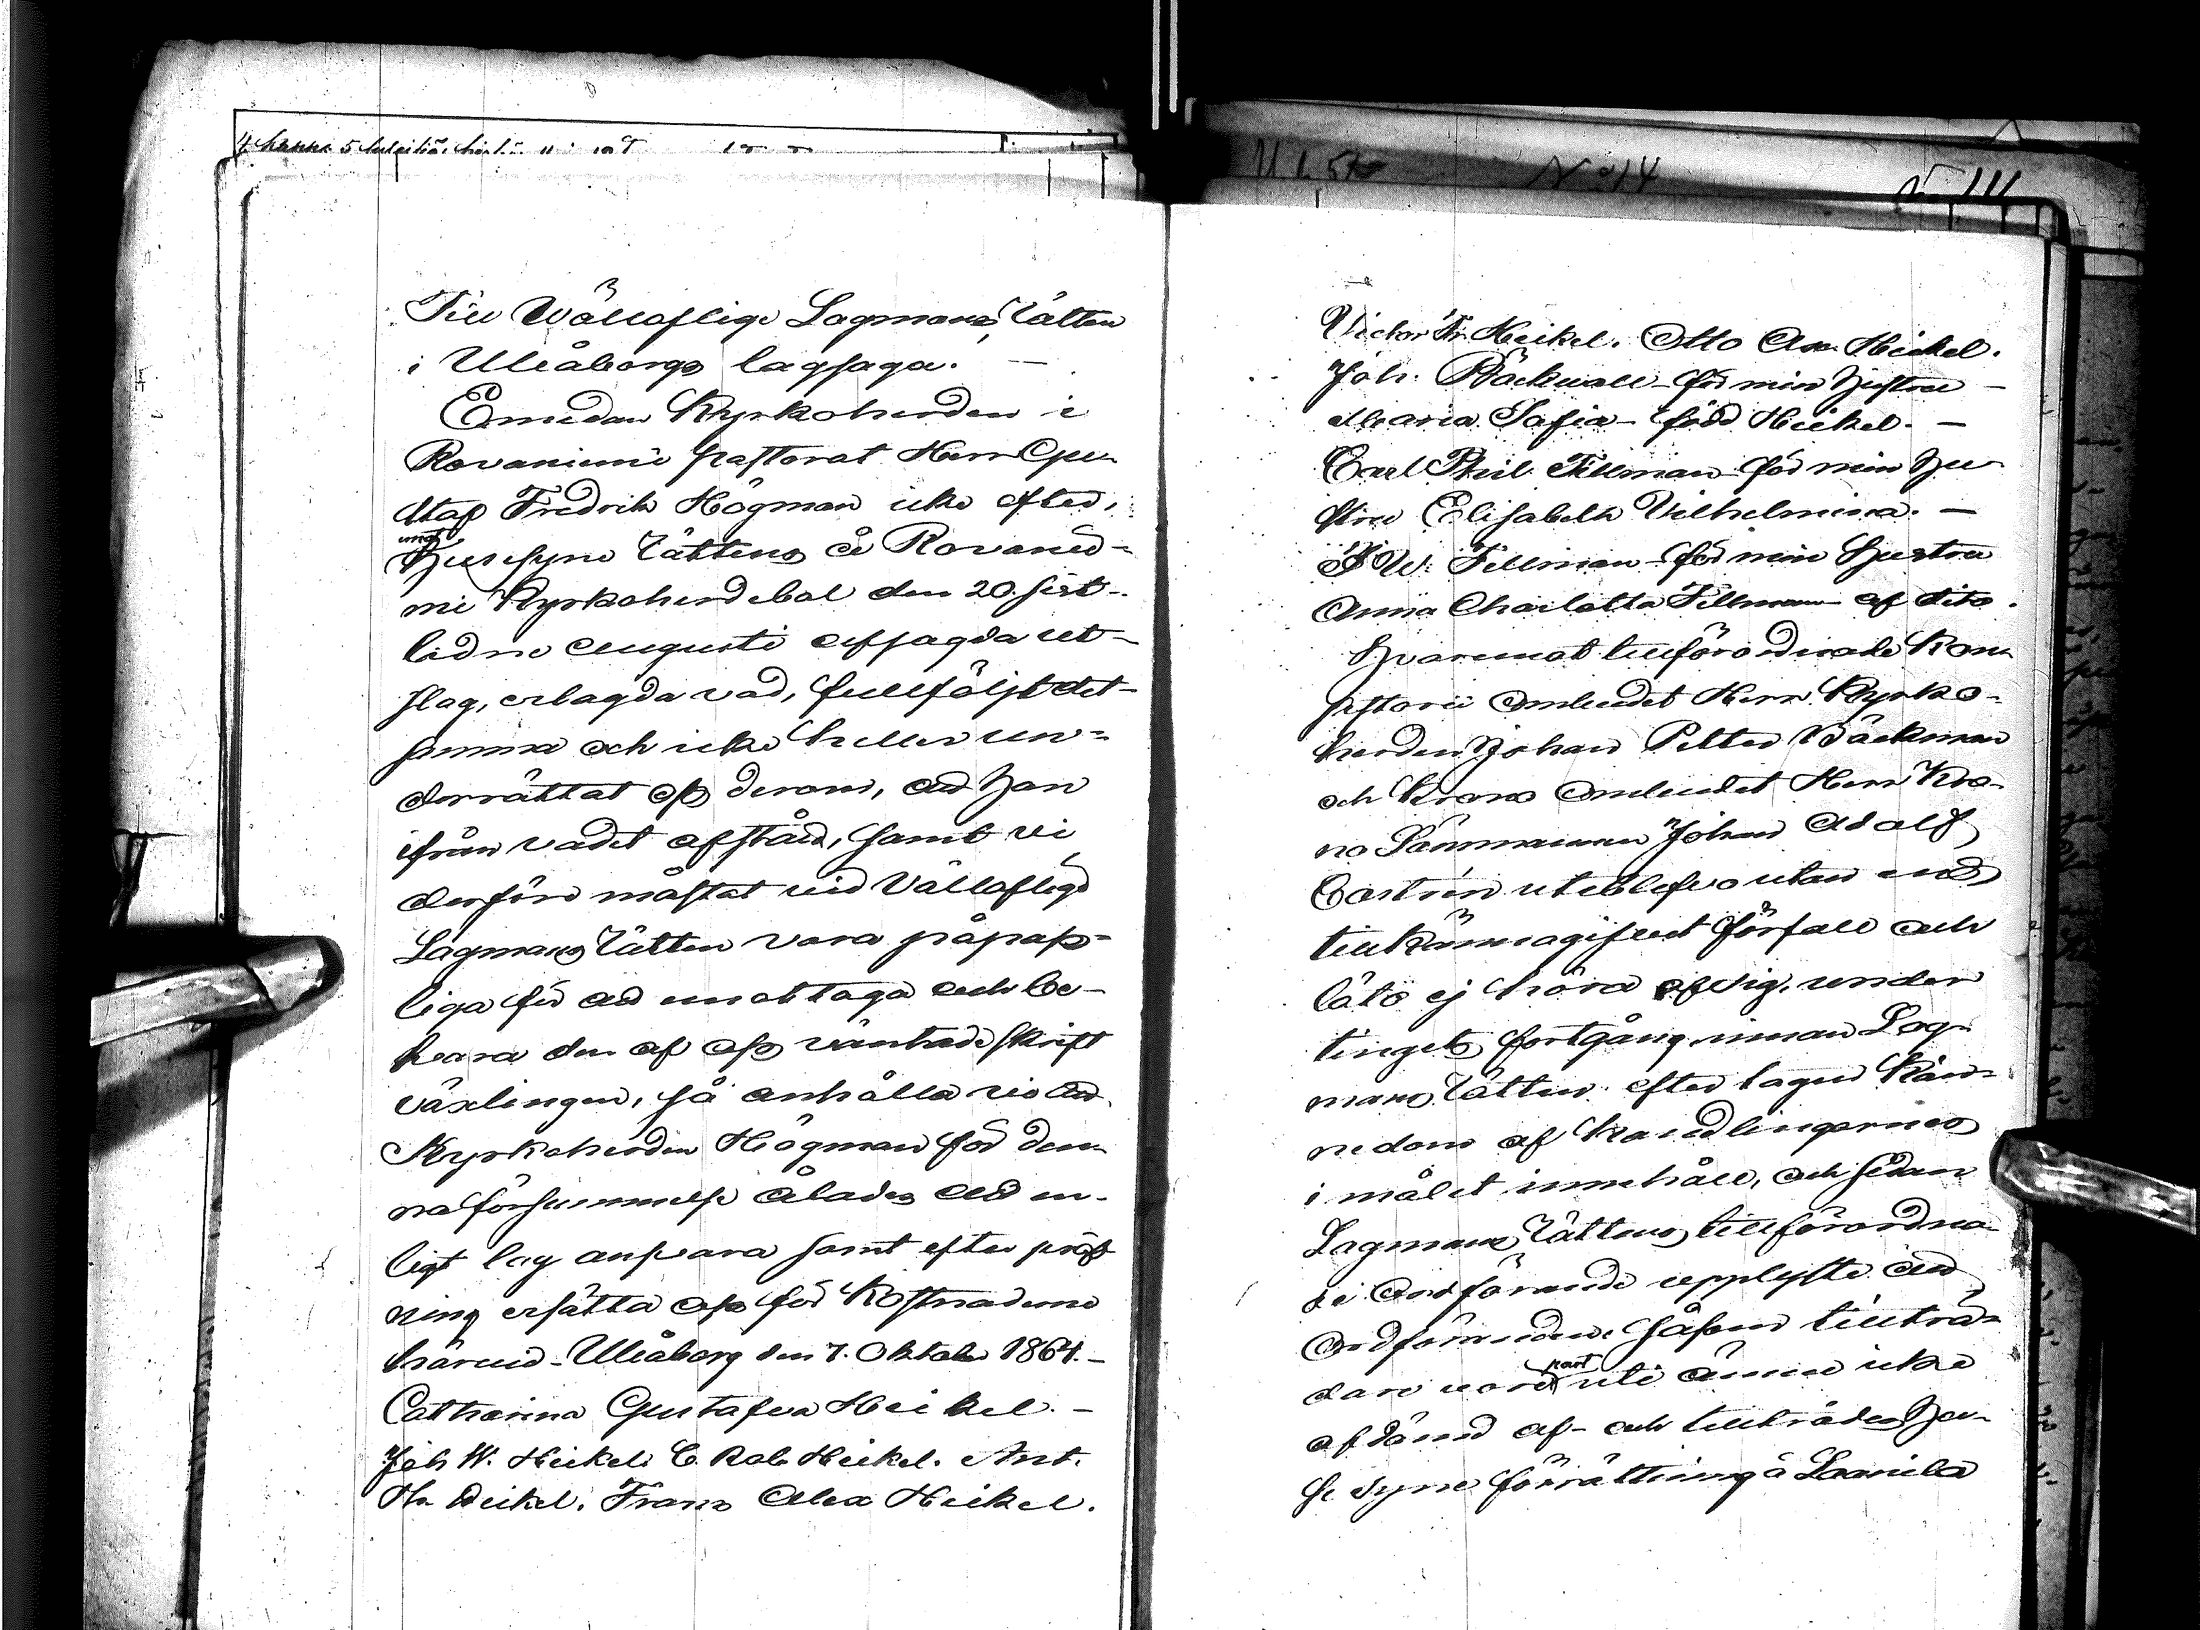 Till Wällaflige Lagmans Rätten
i Uleåborgs lagsaga. —
Emedan Kyrkoherden i
Rovaniemi pastorat Herr Gu-
staf Fredrik Högman icke efter,
emot
Husesyns Rättens å Rovanie-
mi Kyrkoherdebol den 20. sist-
lidne Augusti afsagda ut-
slag, erlagda vad, fullföljt det-
samma och icke heller un-
derrättat oss derom, att han
ifrån vadet afstått, samt vi
derföre måstat vid Vällaflige
Lagmans Rätten vara påpass-
liga för att emottaga och be-
svara den af oss väntade skrift
växlingen, så anhålla vi att
Kyrkoherden Högman för den-
na försummelse ålades att en-
ligt lag ansvara samt efter pröf-
ning ersätta oss för kostnaderne
härvid. Uleåborg den 7. Oktober 1864. —
Catharina Gustafva Heikel. —
Joh W. Heikel. C. Rob. Heikel. Ant.
Hr. Heikel. Franz Alex Heikel.
N:o 14
Victor Fr. Heikel. Otto Ax. Heikel.
Joh. Bäckwall för min hustru —
Maria Sofia — född Heikel. —
Carl Phil. Tillman för min hu-
stru Elisabeth Vilhelmina. —
F. W. Tillman — för min hustru
Anna Charlotta Tillman af dito.
Hvaremot tillförordnade Kon-
sistorii Ombudet Herr Kyrko-
herden Johan Petter Bäckman
och Krono Ombudet Herr Kro-
no Länsmannen Johan Adolf
Castrén uteblefvo utan
tillkännagifvet förfall och
läto ej höra af sig, under
tingets fortgång, innan Lag-
mans Rätten efter tagen kän-
nedom af handlingarnes
i målet innehåll, och sedan
Lagmans Rättens tillförordna-
de Ordförande upplyste att
Ordföranden, såsom tillträ-
dare vore
part
uti ännu icke
afdömd af- och tillträdes hu-
se syne förrättning å Laanila